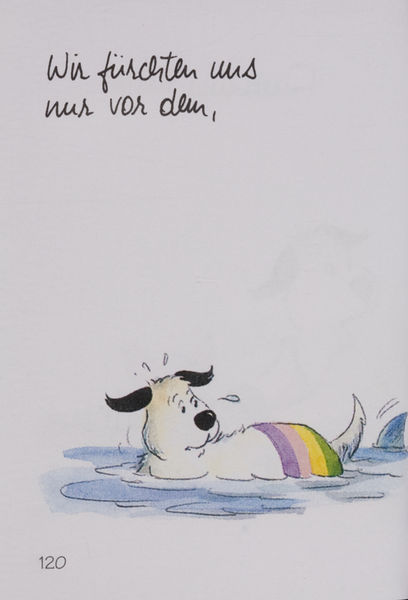 Wir fürchten uns
nur vor dem,
120